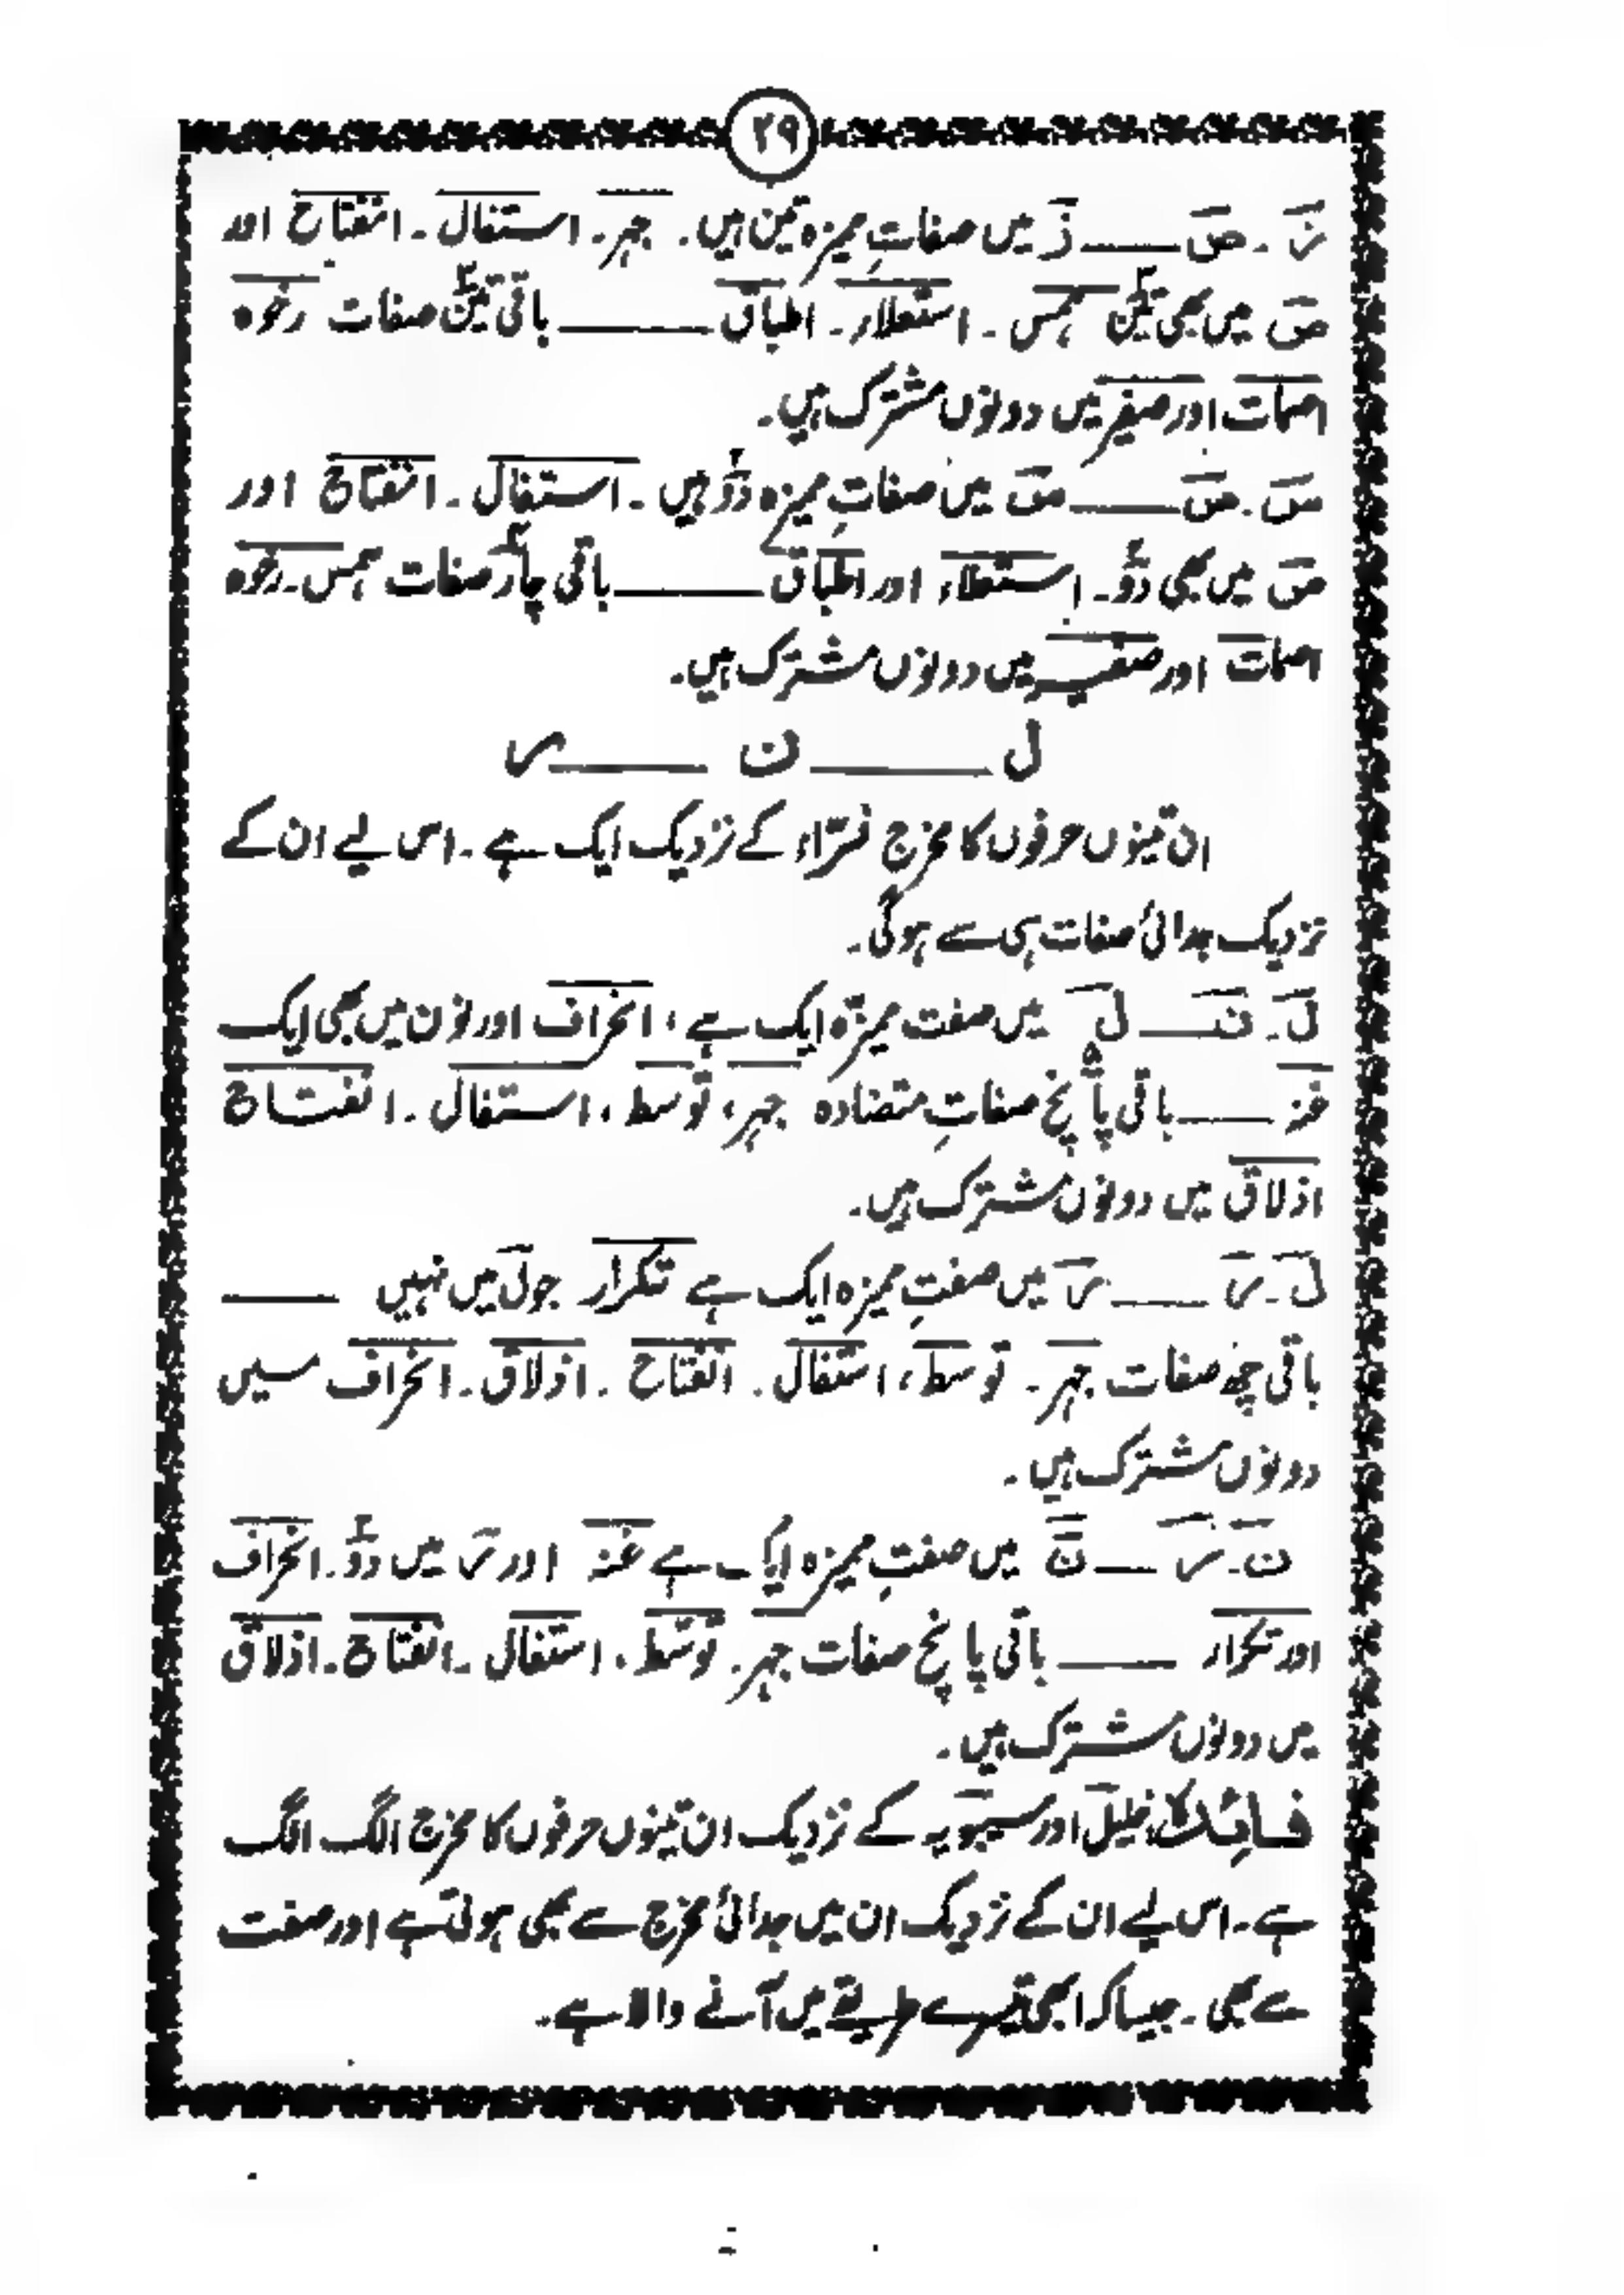 ۲۹
ز۔ ص ــــــ ز میں صفاتِ ممیزہ تین ہیں۔ جہر۔ استفال۔ انفتاح اور
ص میں بھی تین ہمس۔ استعلاء۔ اطباق ــــــ باقی تین صفات رخوہ
اصمات اور صفیر میں دونوں مشترک ہیں۔
س۔ ص ــــــ س میں صفاتِ ممیزہ دو ہیں۔ استفال۔ انفتاح اور
ص میں بھی دو۔ استعلاء اور اطباق ــــــ باقی چار صفات ہمس۔ رخوہ
اصمات اور صفیر میں دونوں مشترک ہیں۔
ل ــــــ ن ــــــ ر
ان تینوں حرفوں کا مخرج فرّاء کے نزدیک ایک ہے۔ اسی لیے ان کے
نزدیک جدائی صفات ہی سے ہوگی۔
ل۔ ن ــــــ ل میں صفت ممیزہ ایک ہے، انحراف اور نون میں بھی ایک
غنہ ــــــ باقی پانچ صفاتِ متضادہ جہر، توسط، استفال۔ انفتاح
اذلاق میں دونوں مشترک ہیں۔
ل۔ ر ــــــ ر میں صفتِ ممیزہ ایک ہے تکرار جو ل میں نہیں ــــــ
باقی چھ صفات جہر۔ توسط، استفال۔ انفتاح۔ اذلاق۔ انحراف میں
دونوں مشترک ہیں۔
ن۔ ر ــــــ ن میں صفتِ ممیزہ ایک ہے غنہ اور ر میں دو۔ انحراف
اور تکرار ــــــ باقی پانچ صفات جہر۔ توسّط، استفال۔ انفتاح۔ اذلاق
میں دونوں مشترک ہیں۔
فائدہ خلیل اور سیبویہ کے نزدیک ان تینوں حرفوں کا مخرج الگ الگ
ہے۔ اس لیے ان کے نزدیک ان میں جدائی مخرج سے بھی ہوتی ہے اور صفت
سے بھی۔ جیسا کہ ابھی تیسرے طریقے میں آنے والا ہے۔